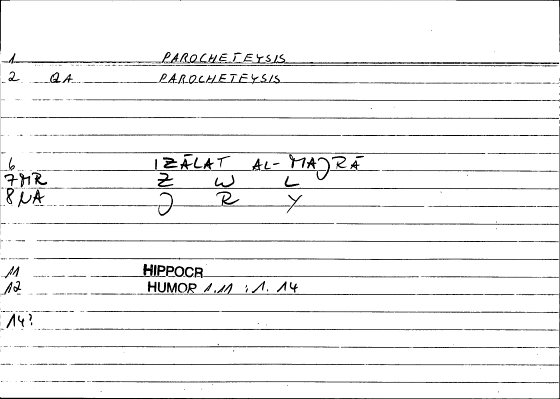 1 PAROCHETEYSIS
2 QA PAROCHETEYSIS
6 IZĀLAT AL-MAJRĀ
7 MR Z W L
8 NA J R Y
11 HIPPOCR
12 HUMOR 1.11 : 1. 14
14?